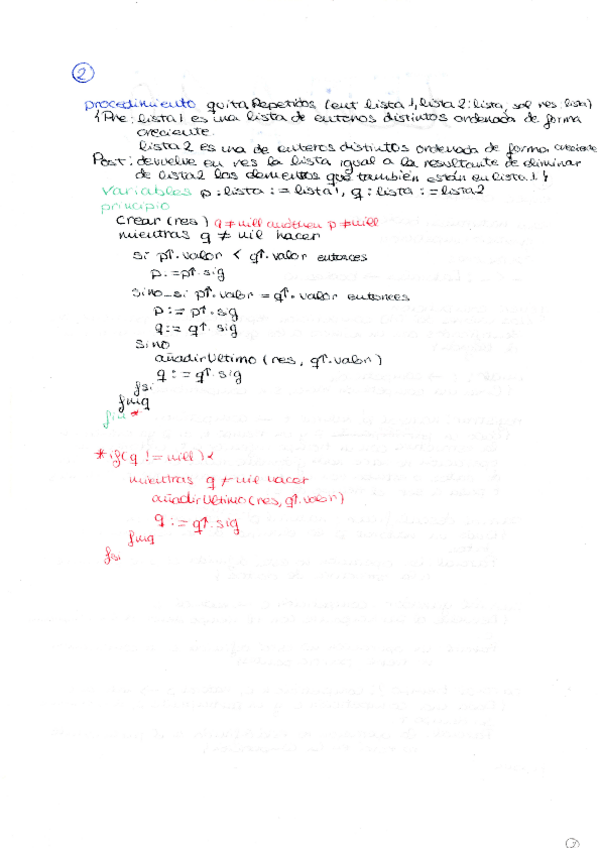 2
procedimiento quitaRepetidos (ent lista1, lista2: lista; sal res: lista)
{Pre: lista1 es una lista de enteros distintos ordenada de forma
creciente.
lista2 es una de enteros distintos ordenada de forma creciente
Post: devuelve en res la lista igual a la resultante de eliminar
de lista2 los elementos que también están en lista1}
variables p: lista := lista1, q: lista := lista2
principio
crear(res) q ≠ nill andthen p ≠ nill
mientras q ≠ nil hacer
si p↑.valor < q↑.valor entonces
p:=p↑.sig
sino_si p↑.valor = q↑.valor entonces
p:= p↑.sig
q:= q↑.sig
sino
añadirUltimo(res, q↑.valor)
q:= q↑.sig
fsi
fmq
fin *
* if(q != nill){
mientras q ≠ nil hacer
añadirUltimo(res, q↑.valor)
q:= q↑.sig
fmq
fsi